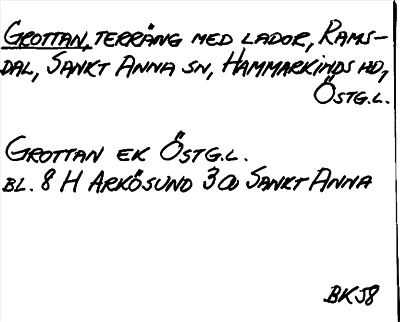 GROTTAN, TERRÄNG MED LADOR, RAMS-
DAL, SANKT ANNA SN, HAMMARKINDS HD,
ÖSTG.L.
GROTTAN EK ÖSTG.L.
BL. 8 H ARKÖSUND 3a SANKT ANNA
BK58